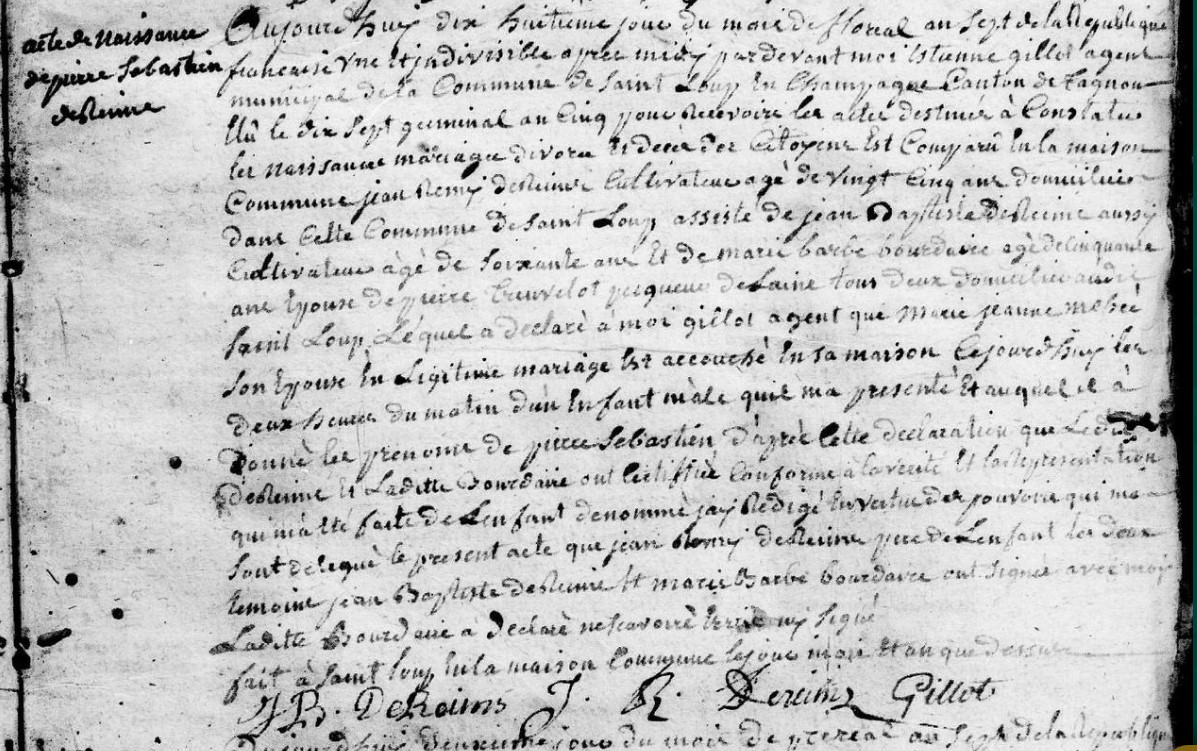 acte de Naissance
de pierre Sebastien
deReime
Aujourd huy dix huitieme jour du mois de floreal an Sept de la Republique
francaise Vne Et jndivisible apres midy pardevant moi Etienne gillot agent
municipal de la Commune de Saint Loup En Champagne Canton de tagnon
Elû le dix Sept germinal an Cinq pour Recevoire les actes destinés à Constater
les naissance mariage divorce Et decès des Citoyens Est Comparû En la maison
Commune jean Remy deReime Cultivateur agé de vingt Cinq ans domicilié
dans Cette Commune de Saint Loup assisté de jean Baptiste deReime aussy
Cultivateur àgé de Soixante ans Et de marie barbe bourdaire agè de cinquante
ans Epouse de pierre truvelot peigneur de Laine tous deux domicilié audit
Saint Loup Lequel a declaré à moi gillot agent que Marie jeanne
Son Epouse En Légitime mariage Est accouché En sa maison Cejourd huy les
deux heures du matin d'un Enfant màle quil ma presenté Et auquel il à
Donné les prenoms de pierre Sebastien d'après Cette declaration que Ledit
deReime Et Laditte Bourdaire ont Certiffiée Conforme à la verité Et la Representation
qui m'a été faite de L'enfant denommé jai Redigé En vertue des pouvoirs qui me
Sont delegué le present acte que jean Remy deReime pere de L'enfant les deux
temoins jean Baptiste deReime Et marie Barbe bourdaire ont Signés avec moy
Laditte Bourdaire à declaré ne scavoire ny Signé
fait à Saint Loup En la maison Commune les jour mois Et an que dessus
J B. DeReims J. R. Dereims Gillot
Aujourd'huy deuxieme jour du mois de prereal an Sept de la Republique